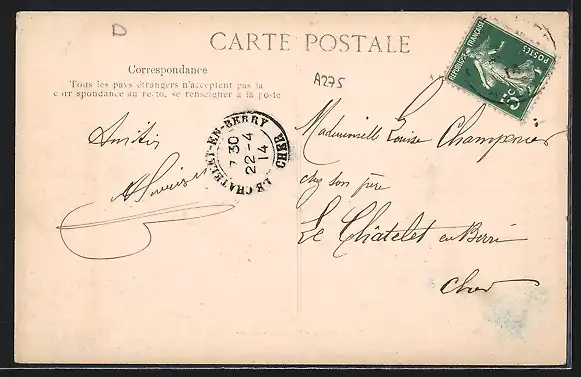 D
CARTE POSTALE
Correspondance
Tous les pays étrangers n'acceptent pas la
correspondance au recto, se renseigner à la poste
A275
REPUBLIQUE FRANÇAISE
POSTES
5c
LE CHATELET-EN-BERRY
7 30
22-4
14
CHER
Amitiés
Mademoiselle Louise Champenier
chez son père
Le Châtelet en Berri
Cher